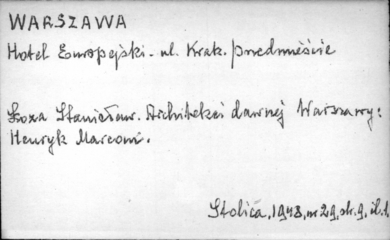 WARSZAWA
Hotel Europejski - ul. Krak. Przedmieście
Łoza Stanisław. Architekci dawnej Warszawy:
Henryk Marconi.
Stolica, 1948, nr 29, str. 9, il. 1.